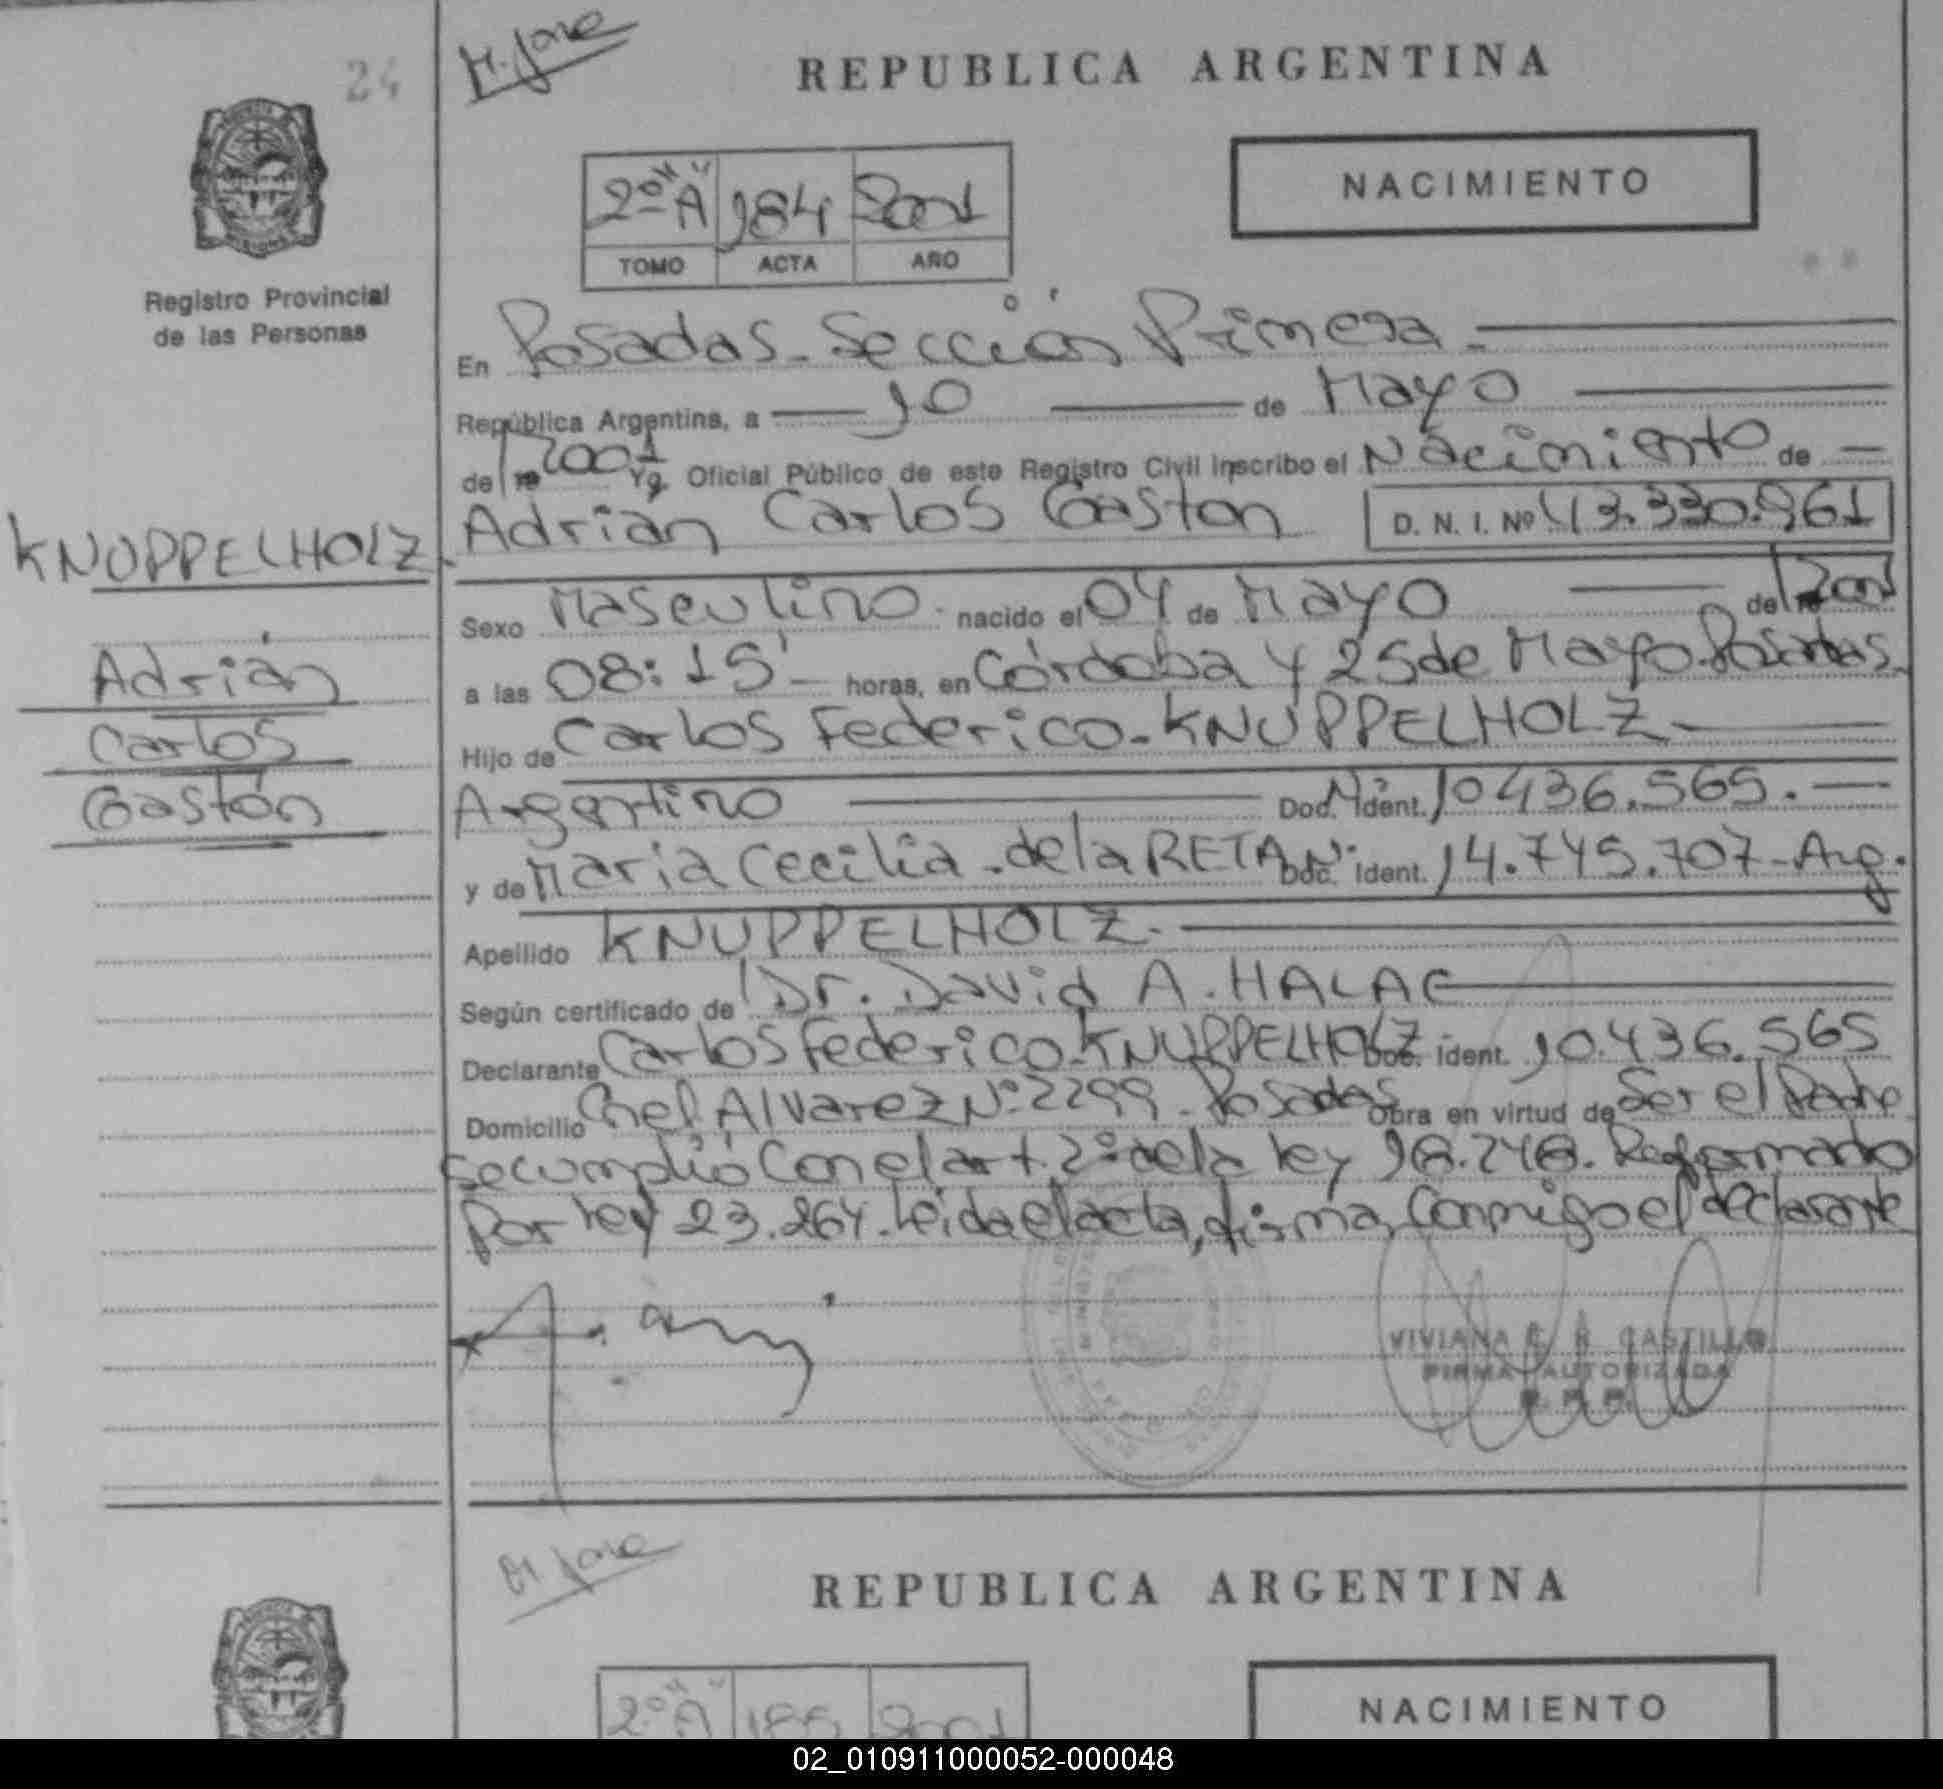 24
REPUBLICA ARGENTINA
NACIMIENTO
2º "A" 184 2001
TOMO ACTA AÑO
Registro Provincial
de las Personas
En Posadas - Sección Primera -
República Argentina, a 10 de Mayo
de 2001 Yo, Oficial Público de este Registro Civil inscribo el Nacimiento de
KNUPPELHOLZ.
Adrián Carlos Gastón D. N. I. Nº 43.330.961
Sexo Masculino. nacido el 04 de Mayo de 2001
Adrián
a las 08:15' horas, en Córdoba y 25 de Mayo. Posadas.
Carlos
Hijo de Carlos Federico - KNUPPELHOLZ -
Gastón
Argentino Doc. N. Ident. 10436.565. -
y de María Cecilia - de la RETA N. Doc. Ident. 14.745.707 - Arg.
Apellido KNUPPELHOLZ. -
Según certificado de Dr. David A. HALAC
Declarante Carlos Federico - KNUPPELHOLZ Doc. Ident. 10.436.565
Domicilio Cnel. Alvarez Nº 2299 - Posadas Obra en virtud de Ser el Padre
Se cumplió Con el art. 2º de la ley 18.248. Reformado
Por ley 23.264. Leida el acta, firma, Conmigo el declarante
VIVIANA E. R. CASTILLO
FIRMA AUTORIZADA
R. P. P.
REPUBLICA ARGENTINA
2º "A" 185 2001
NACIMIENTO
02_010911000052-000048